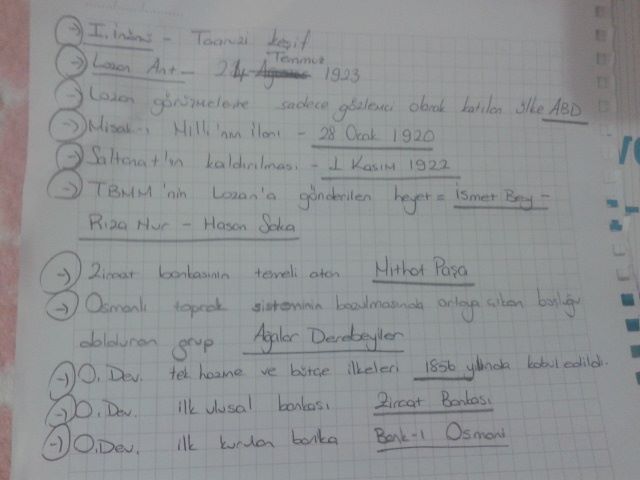 → I. İnönü - Taarruzi keşif
Temmuz
→ Lozan Ant - 24 Ağustos 1923
→ Lozan görüşmelerine sadece gözlemci olarak katılan ülke ABD
→ Misak-ı Milli'nin ilanı - 28 Ocak 1920
→ Saltanat'ın kaldırılması - 1 Kasım 1922
→ TBMM'nin Lozan'a gönderilen heyet = İsmet Bey -
Rıza Nur - Hasan Saka
→ Ziraat bankasının temeli atan Mithat Paşa
→ Osmanlı toprak sisteminin bozulmasında ortaya çıkan boşluğu
dolduran grup Ağalar Derebeyller
→ O. Dev. tek hazine ve bütçe ilkeleri 1856 yılında kabul edildi.
→ O. Dev. ilk ulusal bankası Ziraat Bankası
→ O. Dev. ilk kurulan banka Bank-ı Osmani